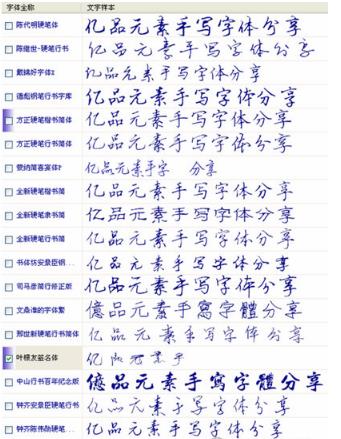 字体全称 文字样本
陈代明硬笔体 亿品元素手写字体分享
陈继世-硬笔行书 亿品元素手写字体分享
戴娴好字体2 亿品元素手写字体分享
德彪钢笔行书字库 亿品元素手写字体分享
方正硬笔楷书简体 亿品元素手写字体分享
方正硬笔行书简体 亿品元素手写字体分享
亿品元素手字 分享
全新硬笔楷书简 亿品元素手写字体分享
全新硬笔隶书简 亿品元素手写字体分享
全新硬笔行书简 亿品元素手写字体分享
书体坊安景臣钢... 亿品元素手写字体分享
司马彦简行修正版 亿品元素手写字体分享
文鼎谁的字体繁 億品元素手寫字體分享
邢世新硬笔行书简体 亿品元素手写字体分享
叶根友签名体 亿 元素手
中山行书百年纪念版 億品元素手寫字體分享
钟齐安景臣硬笔行书 亿品元素手写字体分享
钟齐陈伟勋硬笔... 亿品元素手写字体分享